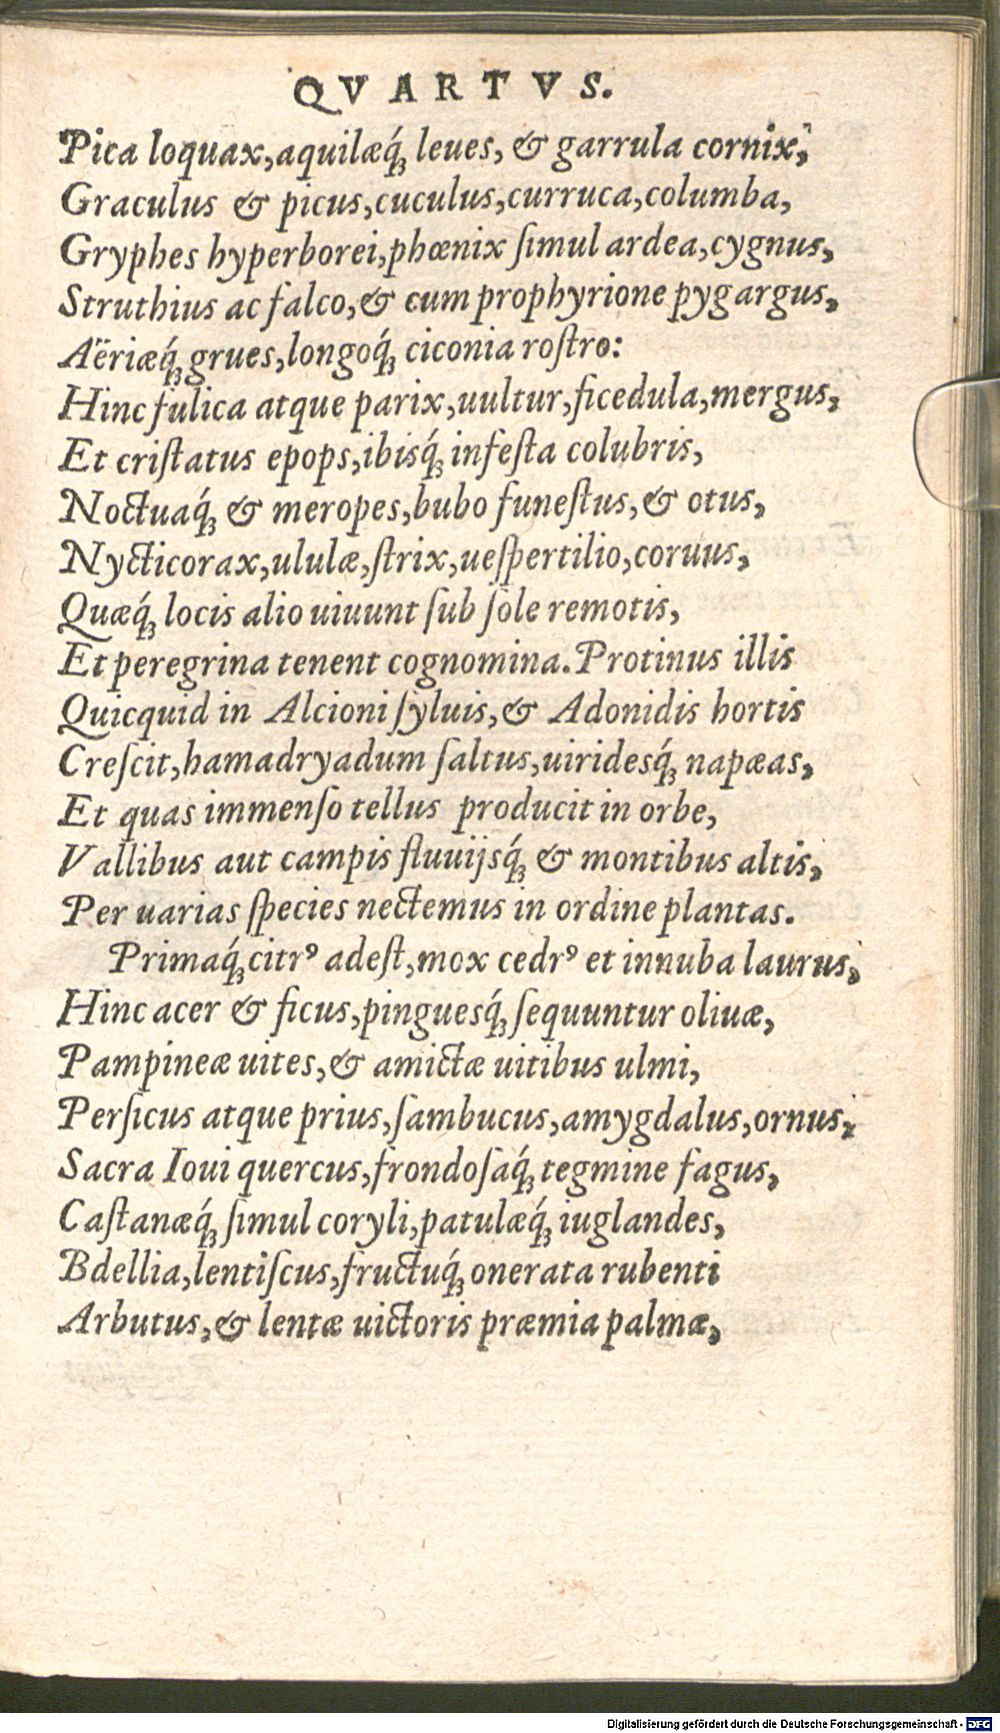 QVARTVS.
Pica loquax,aquilæq́ꝫ leues, & garrula cornix,
Graculus & picus,cuculus,curruca,columba,
Gryphes hyperborei,phœnix ſimul ardea,cygnus,
Struthius ac falco,& cum prophyrione pygargus,
Aëriæq́ꝫ grues,longoq́ꝫ ciconia roſtro:
Hinc fulica atque parix,uultur,ficedula,mergus,
Et criſtatus epops,ibisq́ꝫ infeſta colubris,
Noctuaq́ꝫ & meropes,bubo funeſtus,& otus,
Nycticorax,ululæ,ſtrix,ueſpertilio,coruus,
Quæq́ꝫ locis alio uiuunt ſub ſole remotis,
Et peregrina tenent cognomina.Protinus illis
Quicquid in Alcioni ſyluis,& Adonidis hortis
Creſcit,hamadryadum ſaltus,uiridesq́ꝫ napæas,
Et quas immenſo tellus producit in orbe,
Vallibus aut campis fluuijsq́ꝫ & montibus altis,
Per uarias ſpecies nectemus in ordine plantas.
Primaq́ꝫ citrꝰ adeſt,mox cedrꝰ et innuba laurus,
Hinc acer & ficus,pinguesq́ꝫ ſequuntur oliuæ,
Pampineæ uites,& amictæ uitibus ulmi,
Perſicus atque prius,ſambucus,amygdalus,ornus,
Sacra Ioui quercus,frondoſaq́ꝫ tegmine fagus,
Caſtanæq́ꝫ ſimul coryli,patulæq́ꝫ iuglandes,
Bdellia,lentiſcus,fructuq́ꝫ onerata rubenti
Arbutus,& lentæ uictoris præmia palmæ,
Digitalisierung gefördert durch die Deutsche Forschungsgemeinschaft - DFG